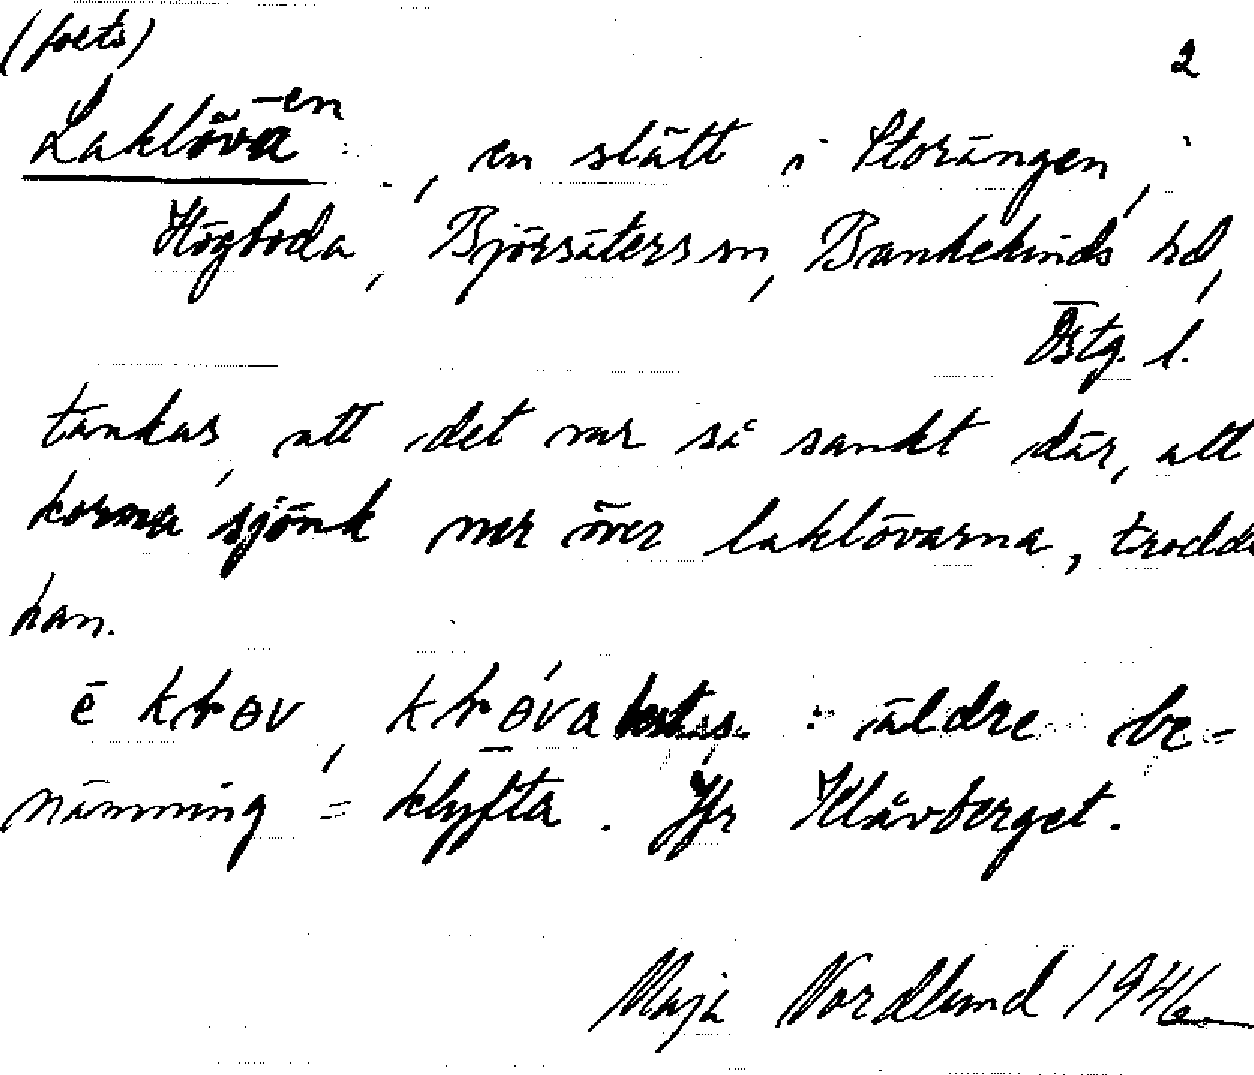 (forts)
2
Laklöva -en, en slätt i Storängen,
Högboda, Björsäters sn, Bankekinds hd,
Östg. l.
tänkas, att det var så sankt där, att
korna sjönk ner över laklövarna, trodde
han.
äldre be=
nämning = klyfta. Jfr Klåvberget.
Maja Nordlund 1946